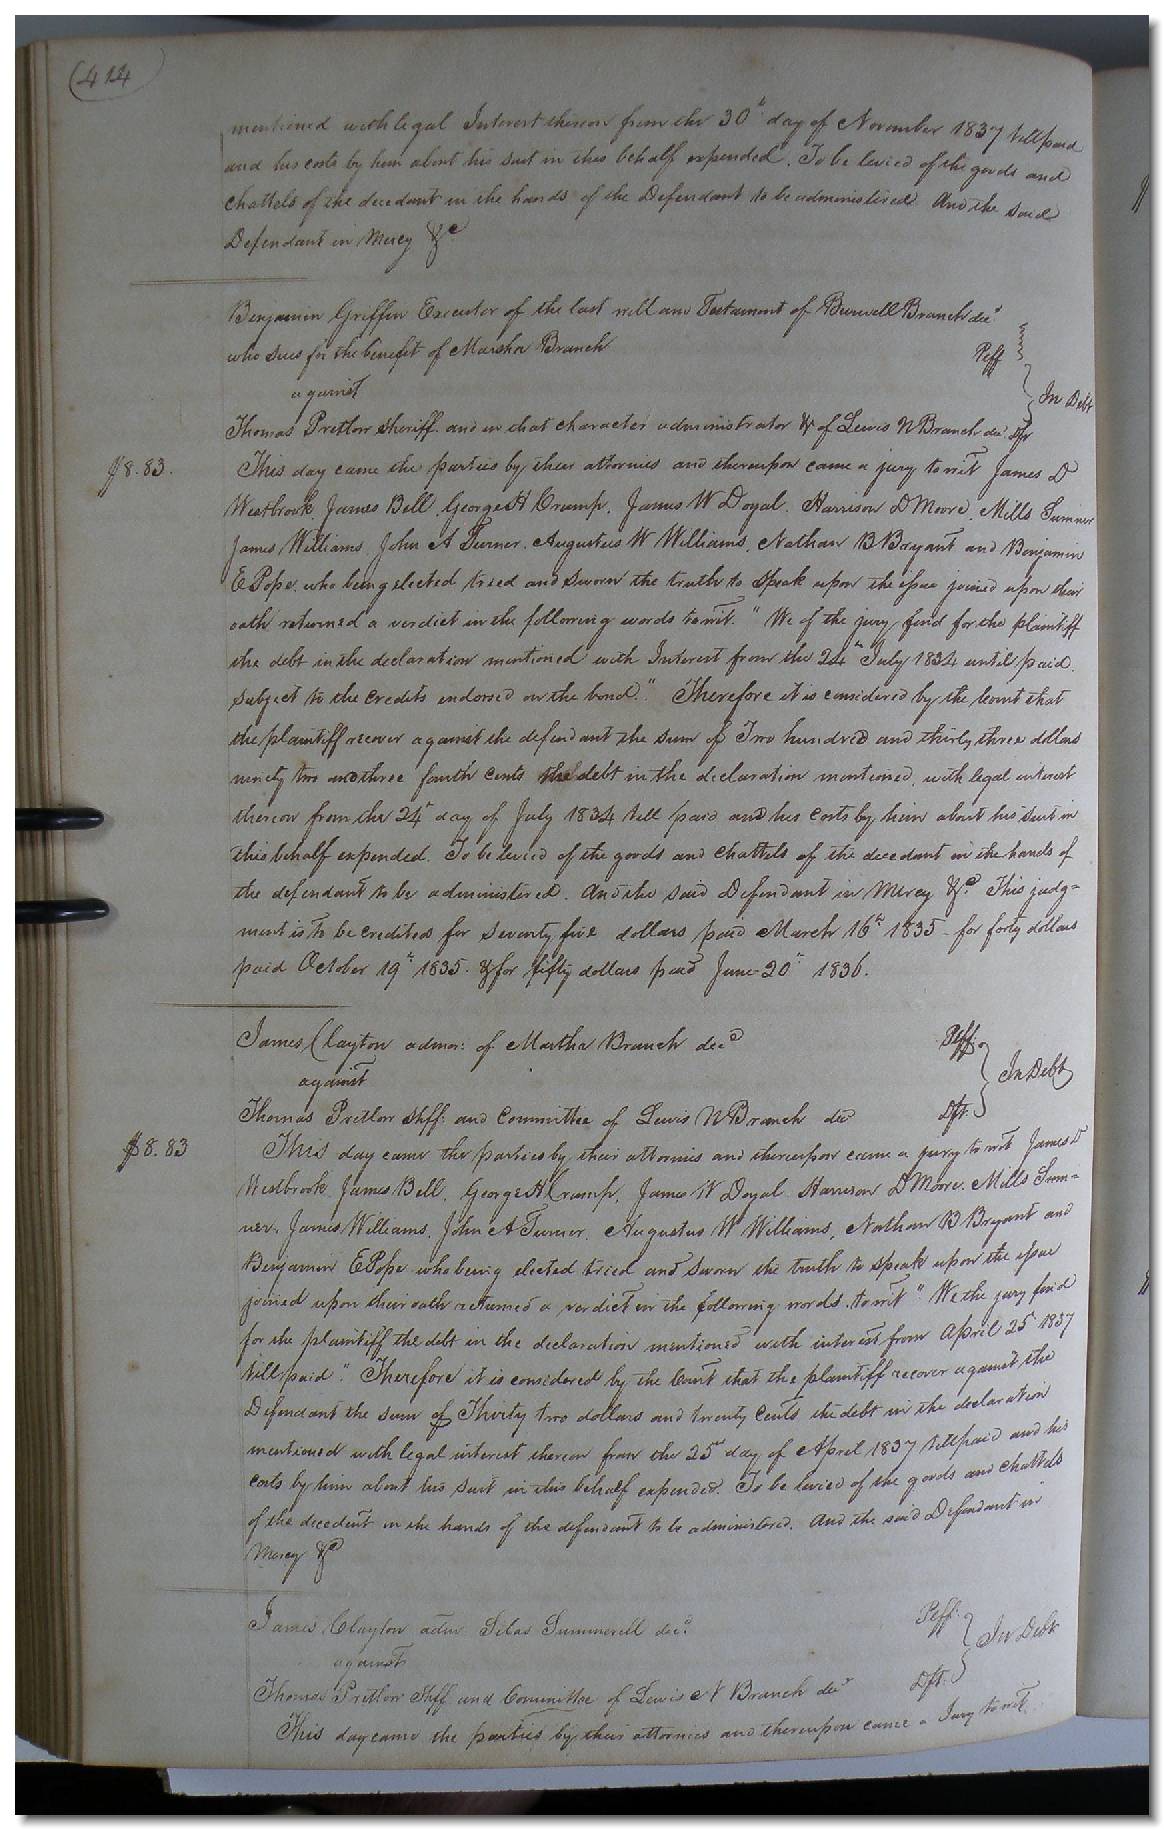 (414
mentioned with legal Interest thereon from the 30th day of November 1837 till paid
and his costs by him about his suit in this behalf expended. To be levied of the goods and
chattels of the decedant in the hands of the Defendant to be administered And the said
Defendant in Mercy &c
Benjamin Griffin Executor of the last will and Testament of Burwell Branch decd
who sues for the benefit of Marsha Branch Plff
against In Debt
Thomas Pretlow Sheriff and in that character administrator &c of Lewis N Branch decd Dft
$8.83. This day came the parties by their attornies and thereupon came a jury to wit James D
Westbrook, James Bell, George H Crump, James W Doyal, Harrison D Moore, Mills Sumner
James Williams, John A Turner, Augustus W Williams, Nathan B Bryant and Benjamin
E Pope, who being elected tried and sworn the truth to speak upon the issue joined upon their
oath returned a verdict in the following words to wit. "We of the jury find for the plaintiff
the debt in the declaration mentioned with Interest from the 24th July 1834 until paid.
subject to the credits endorsed on the bond." Therefore it is considered by the Court that
the plaintiff recover against the defendant the sum of Two hundred and thirty three dollars
ninety two and three fourth cents the debt in the declaration mentioned, with legal interest
thereon from the 24th day of July 1834 till paid and his costs by him about his suit in
this behalf expended. To be levied of the goods and chattels of the decedant in the hands of
the defendant to be administered. And the said Defendant in Mercy &c This judg=
ment is to be credited for seventy five dollars paid March 16th 1835 - for forty dollars
paid October 19th 1835. & for fifty dollars paid June 20th 1836.
James Clayton admor: of Martha Branch decd Plff.
against In Debt
Thomas Pretlow Shff: and Committee of Lewis N Branch decd Dft.
$8.83 This day came the parties by their attornies and thereupon came a jury to wit James D
Westbrook, James Bell, George H Crump, James W Doyal Harrison D Moore, Mills Sum=
ner, James Williams, John A Turner, Augustus W Williams, Nathan B Bryant and
Benjamin E Pope who being elected tried and sworn the truth to speak upon the issue
joined upon their oath returned a verdict in the following words, to wit "We the jury find
for the plaintiff the debt in the declaration mentioned with interest from April 25th 1837
till paid". Therefore it is considered by the Court that the plaintiff recover against the
Defendant the sum of Thirty two dollars and twenty Cents the debt in the declaration
mentioned with legal interest thereon from the 25th day of April 1837 till paid and his
costs by him about his suit in this behalf expended. To be levied of the goods and chattels
of the decedent in the hands of the defendant to be administered. And the said Defendant in
Mercy &c
James Clayton adm Silas Summerell decd. Plff.
against In Debt
Thomas Pretlow Shff and Committee of Lewis N Branch decd Dft.
This day came the parties by their attornies and thereupon came a Jury to wit